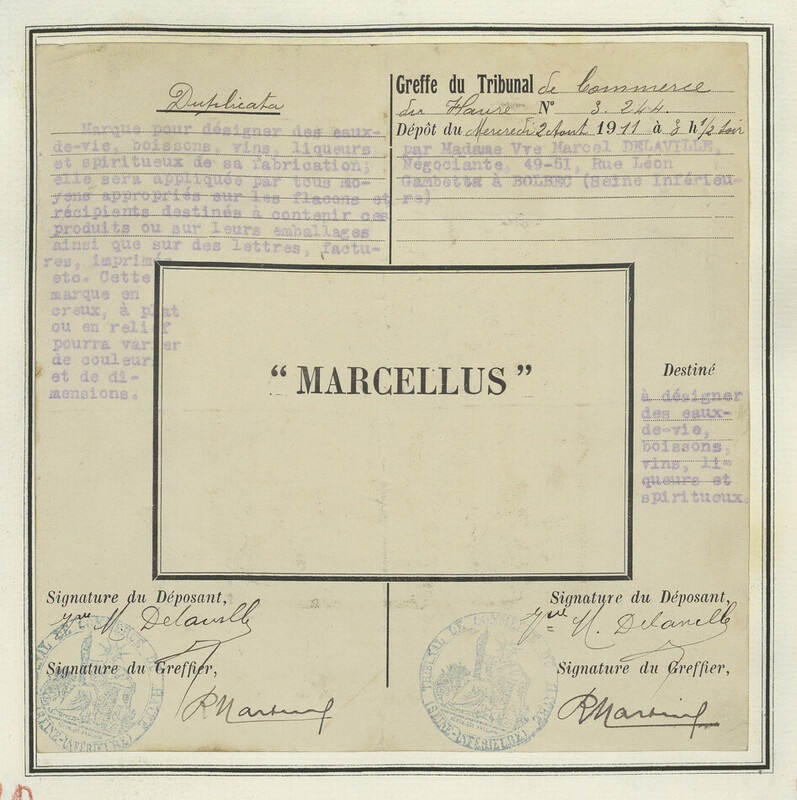 Duplicata
Marque pour désigner des eaux-
de-vie, boissons, vins, liqueurs
et spiritueux de sa fabrication;
elle sera appliquée par tous mo-
yens appropriés sur les flacons et
récipients destinés à contenir ces
produits ou sur leurs emballages
ainsi que sur des lettres, factu-
res, imprimés
etc. Cette
marque en
creux, à plat
ou en relief
pourra varier
de couleurs
et de di-
mensions.
Greffe du Tribunal de Commerce
du Havre N° 3.244.
Dépôt du Mercredi 2 Aout 1911 à 3 h 1/2 soir
par Madame Vve Marcel DELAVILLE,
Négociante, 49-51, Rue Léon
Gambetta à BOLBEC (Seine Inférieu-
re)
“ MARCELLUS ”
Destiné
à désigner
des eaux-
de-vie,
boissons,
vins, li-
queurs et
spiritueux.
Signature du Déposant,
Vve M. Delaville
Signature du Greffier,
R Martin
TRIBUNAL DE COMMERCE DU HAVRE
(SEINE-INFÉRIEURE)
Signature du Déposant,
Vve M. Delaville
Signature du Greffier,
TRIBUNAL DE COMMERCE DU HAVRE
(SEINE-INFÉRIEURE)